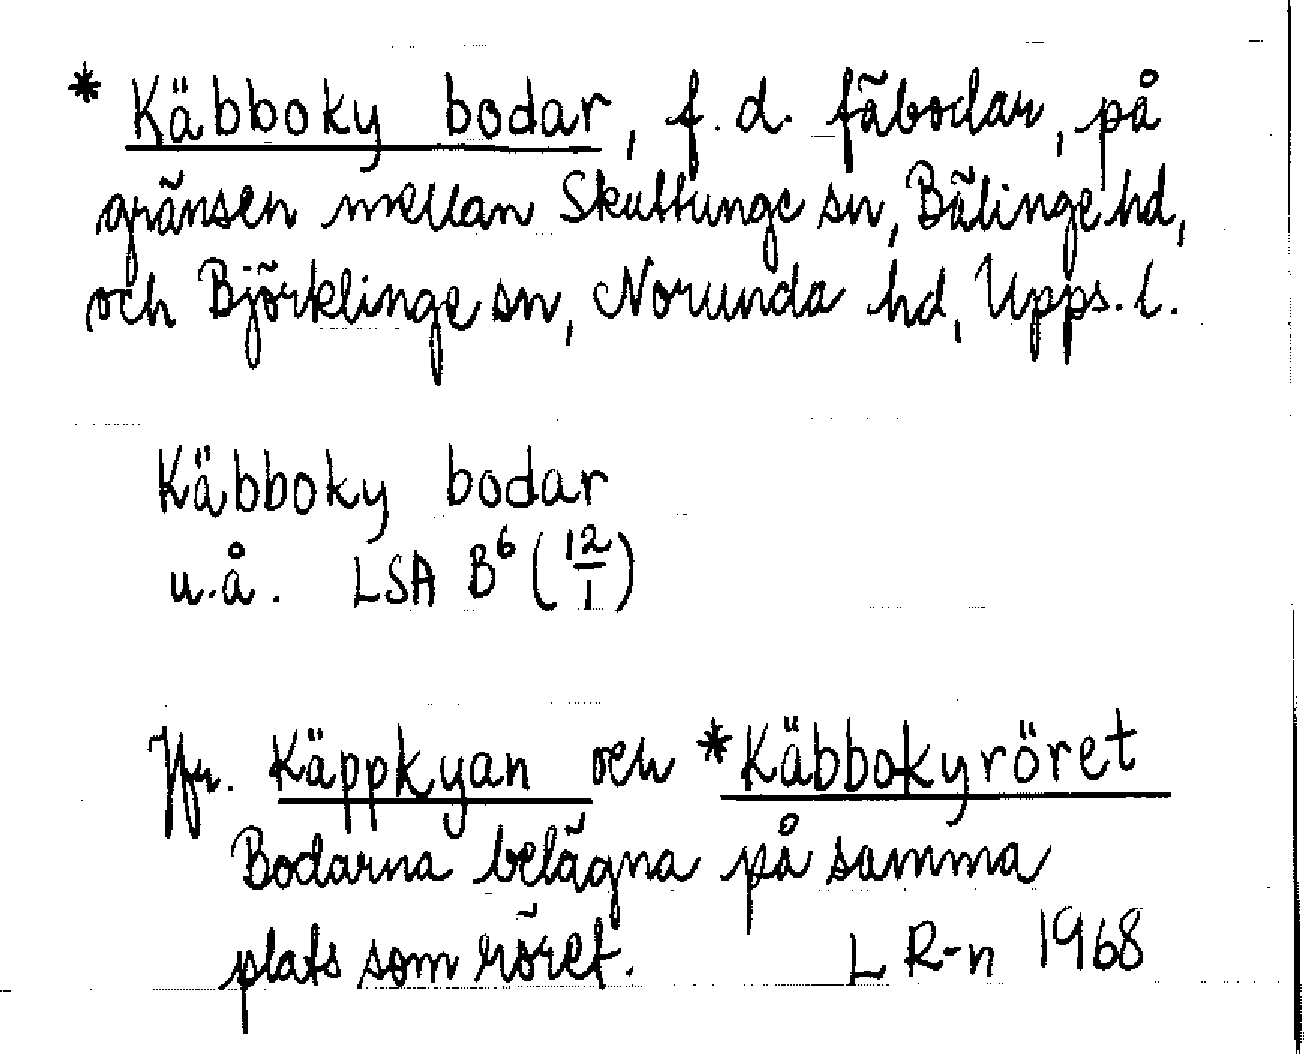 * Käbboky bodar, f.d. fäbodar, på
gränsen mellan Skuttunge sn, Bälinge hd,
och Björklinge sn, Norunda hd, Upps. l.
Käbboky bodar
u.å. LSA B⁶ (12/1)
Jfr. Käppkyan och *Käbbokyröret
Bodarna belägna på samma
plats som röret. L R-n 1968